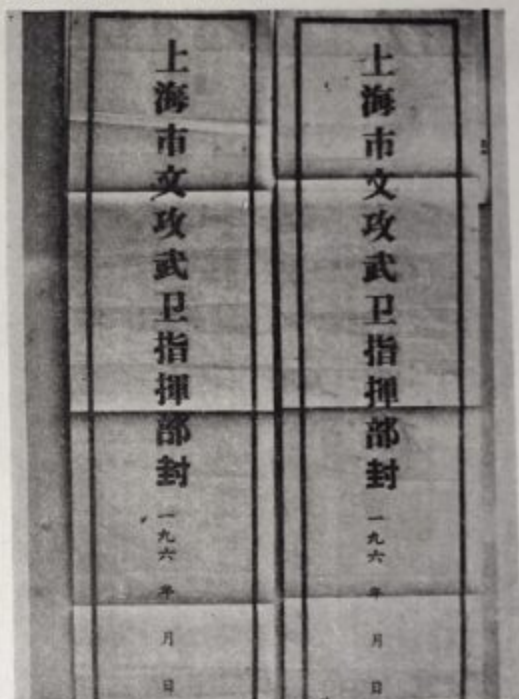 上海市文攻武卫指揮部封
一九六 年 月 日
上海市文攻武卫指揮部封
一九六 年 月 日